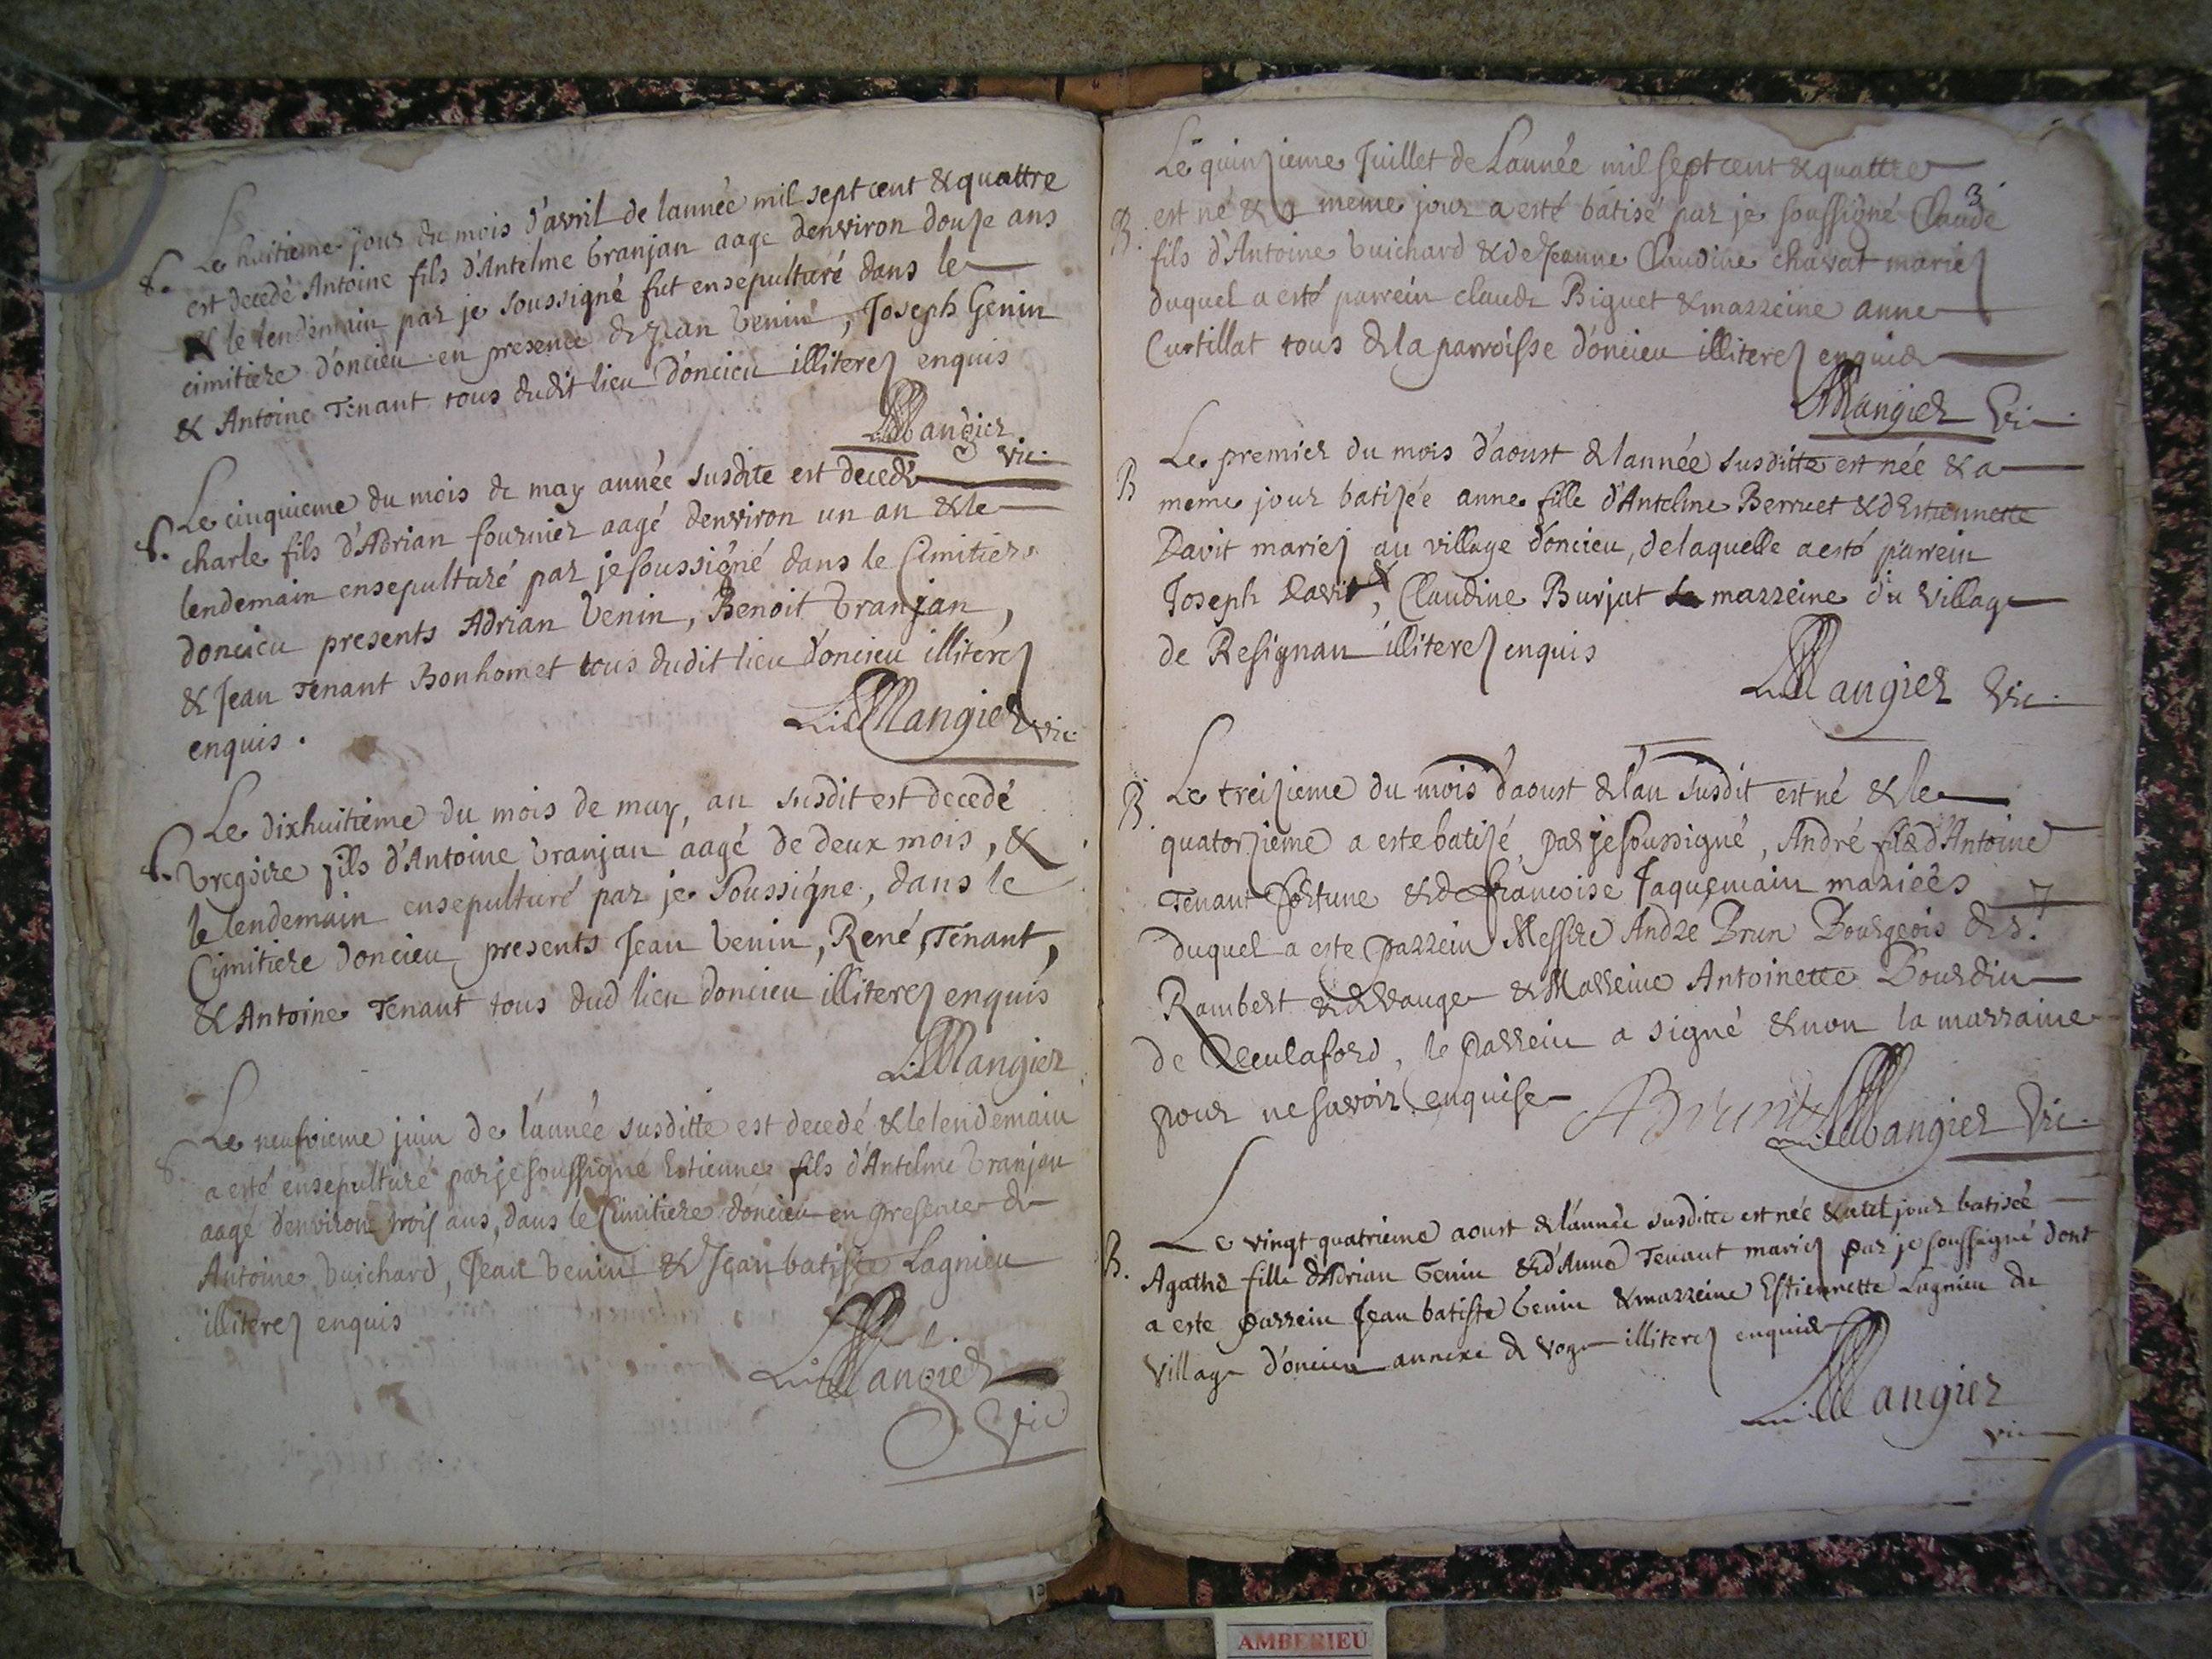 Le huitieme jour du mois d'avril de lannée mil sept cent & quattre
S.
est decedé Antoine fils d'Antelme Granjan aagé denviron douse ans
& le lendemain par je soussigné fut ensepulturé dans le
cimitiere d'oncieu en presence de Jean Genin, Joseph Genin
& Antoine Tenant tous dudit lieu d'oncieu illiterez enquis
Mangier
vic.
Le cinquieme du mois de may année susdite est decedé
S.
charle fils d'Adrian fournier aagé denviron un an & le
lendemain ensepulturé par je soussigné dans le Cimitiere
doncieu presents Adrian Genin, Benoit Granjan,
& Jean Tenant Bonhomet tous dudit lieu d'oncieu illiterez
enquis.
Mangier vic.
Le dixhuitieme du mois de may, an susdit est decedé
S.
Gregoire fils d'Antoine Granjan aagé de deux mois, &
le lendemain ensepulturé par je soussigné, dans le
Cimitiere doncieu presents Jean Genin, René Tenant,
& Antoine Tenant tous dud lieu doncieu illiterez enquis
Mangier
Le neufvieme juin de l'année susditte est decedé & le lendemain
S.
a esté ensepulturé par je soussigné Estienne fils d'Antelme Granjan
aagé d'environ trois ans, dans le Cimitiere d'oncieu en presence de
Antoine Guichard, Jean Genin & Jean batiste Lagnieu
illiterez enquis
Mangier
Vic
Le quinzieme Juillet de L'année mil sept cent & quattre
3
B.
est né & a meme jour a esté batisé par je soussigné Claude
fils d'Antoine Guichard & de Jeanne Claudine chavat mariez
duquel a esté parrein claude Biguet & marreine anne
Curtillat tous de la parroisse d'oncieu illiterez enquis
Mangier Vic.
Le premier du mois d'aoust de lannée susditte est née & a
B
meme jour batisée anne fille d'Antelme Berruet & d'Estiennette
Davit mariez au village d'oncieu, de laquelle a esté parrein
Joseph Davit, & Claudine Burjat marreine du village
de Resignan illiterez enquis
Mangier Vic.
B.
Le treizieme du mois d'aoust de l'an susdit est né & le
quatorzieme a este batisé, par je soussigné, André fils d'Antoine
Tenant fortune & de francoise Jaquemain mariées
duquel a este parrein Messire André Brun Bourgeois de St.
Rambert & marreine Antoinette Bourdin
de, le parrein a signé & non la marraine
pour ne savoir enquise
ABrun Mangier Vic.
Le vingt quatrieme aoust de l'année susditte est née & a tel jour batisée
B.
Agathe fille d'Adrian Genin & d'Anne Tenant mariez par je soussigné dont
a este parrein Jean batiste Genin & marreine Estiennette Lagnieu du
village d'oncieu annexe de voge illiterez enquis
Mangier
vic
AMBERIEU